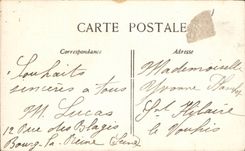 CARTE POSTALE
Correspondance
Adresse
Souhaits
sincères à tous
M. Lucas
12 Rue des Blagis
Bourg-la-Reine (Seine)
Mademoiselle
Yvonne
St Hilaire
le